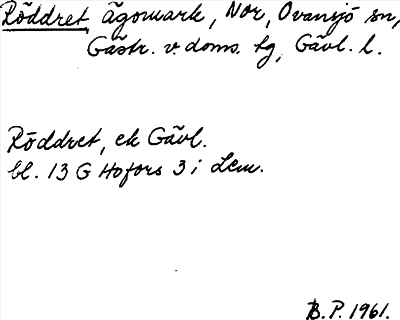 Röddret, ägomark, Nor, Ovansjö sn,
Gästr. v. doms. tg, Gävl. l.
Röddret, ek Gävl.
bl. 13 G Hofors 3 i Lem.
B.P. 1961.